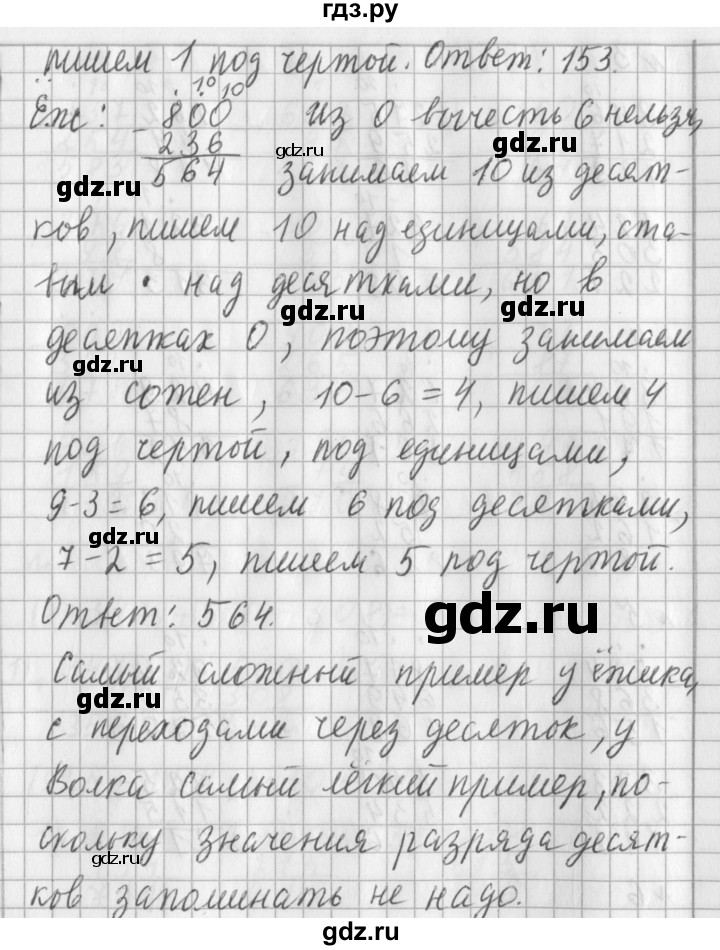 гдз.ру
пишем 1 под чертой. Ответ: 153.
. 10 10
Ёж: - 800 из 0 вычесть 6 нельзя,
236 gdz.ru
564 занимаем 10 из десят-
gdz.ru gdz.ru
ков, пишем 10 над единицами, ста-
вим • над десятками, но в
gdz.ru gdz.ru
десятках 0, поэтому занимаем
gdz.ru
из сотен, 10-6=4, пишем 4
под чертой, под единицами,
9-3=6, пишем 6 под десятками,
gdz.ru
7-2=5, пишем 5 под чертой.
Ответ: 564.
gdz.ru
Самый сложный пример у ёжика,
gdz.ru
с переходами через десяток, у
Волка самый лёгкий пример, по-
скольку значения разряда десят-
gdz.ru gdz.ru
ков запоминать не надо.
gdz.ru